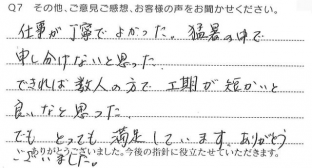 Q7 その他、ご意見ご感想、お客様の声をお聞かせください。
仕事が丁寧でよかった。猛暑の中で
申し分けないと思った。
できれば数人の方で工期が短かいと
良いなと思った。
でもとっても満足しています。ありがとう
ございました。
ありがとうございました。今後の指針に役立たせていただきます。